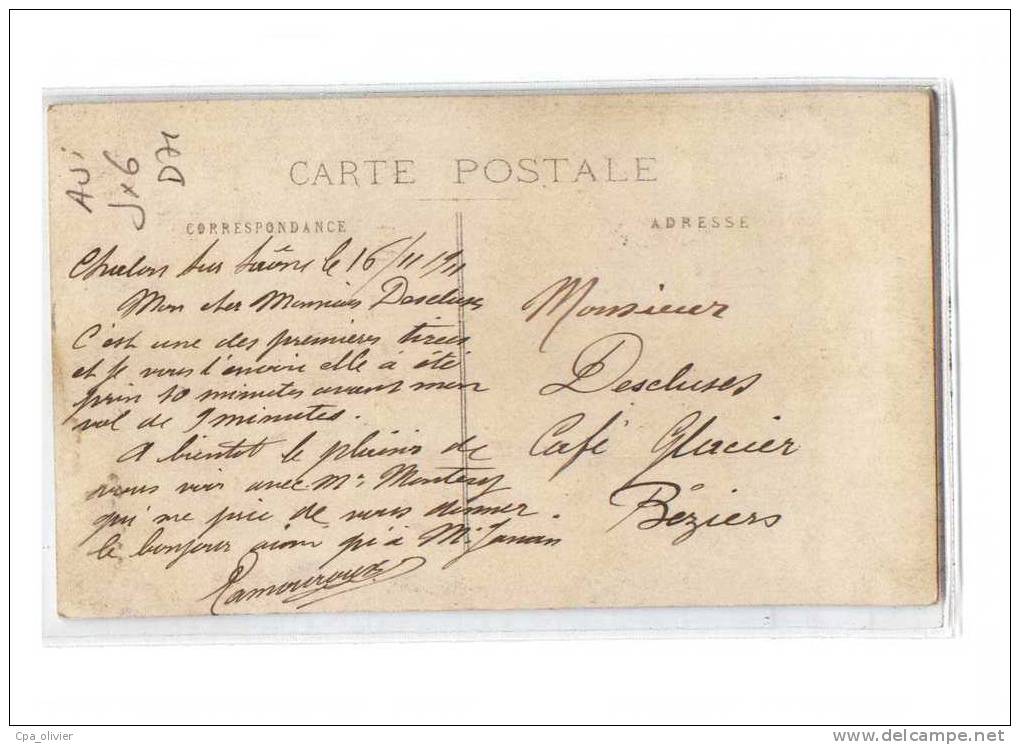 AVI
J×6
D71
CARTE POSTALE
CORRESPONDANCE
ADRESSE
Chalon sur Saône le 16/11 1911
Mon cher Monsieur Descluses
C'est une des premieres tirées
et je vous l'envoie elle à été
pris 10 minutes avant mon
vol de 9 minutes.
A bientot le plaisir de
vous voir avec Mr
qui me prie de vous donner
le bonjour ainsi qu'à Mr
Lamouroux
Monsieur
Descluses
Café Glacier
Béziers
Cpa_olivier
www.delcampe.net